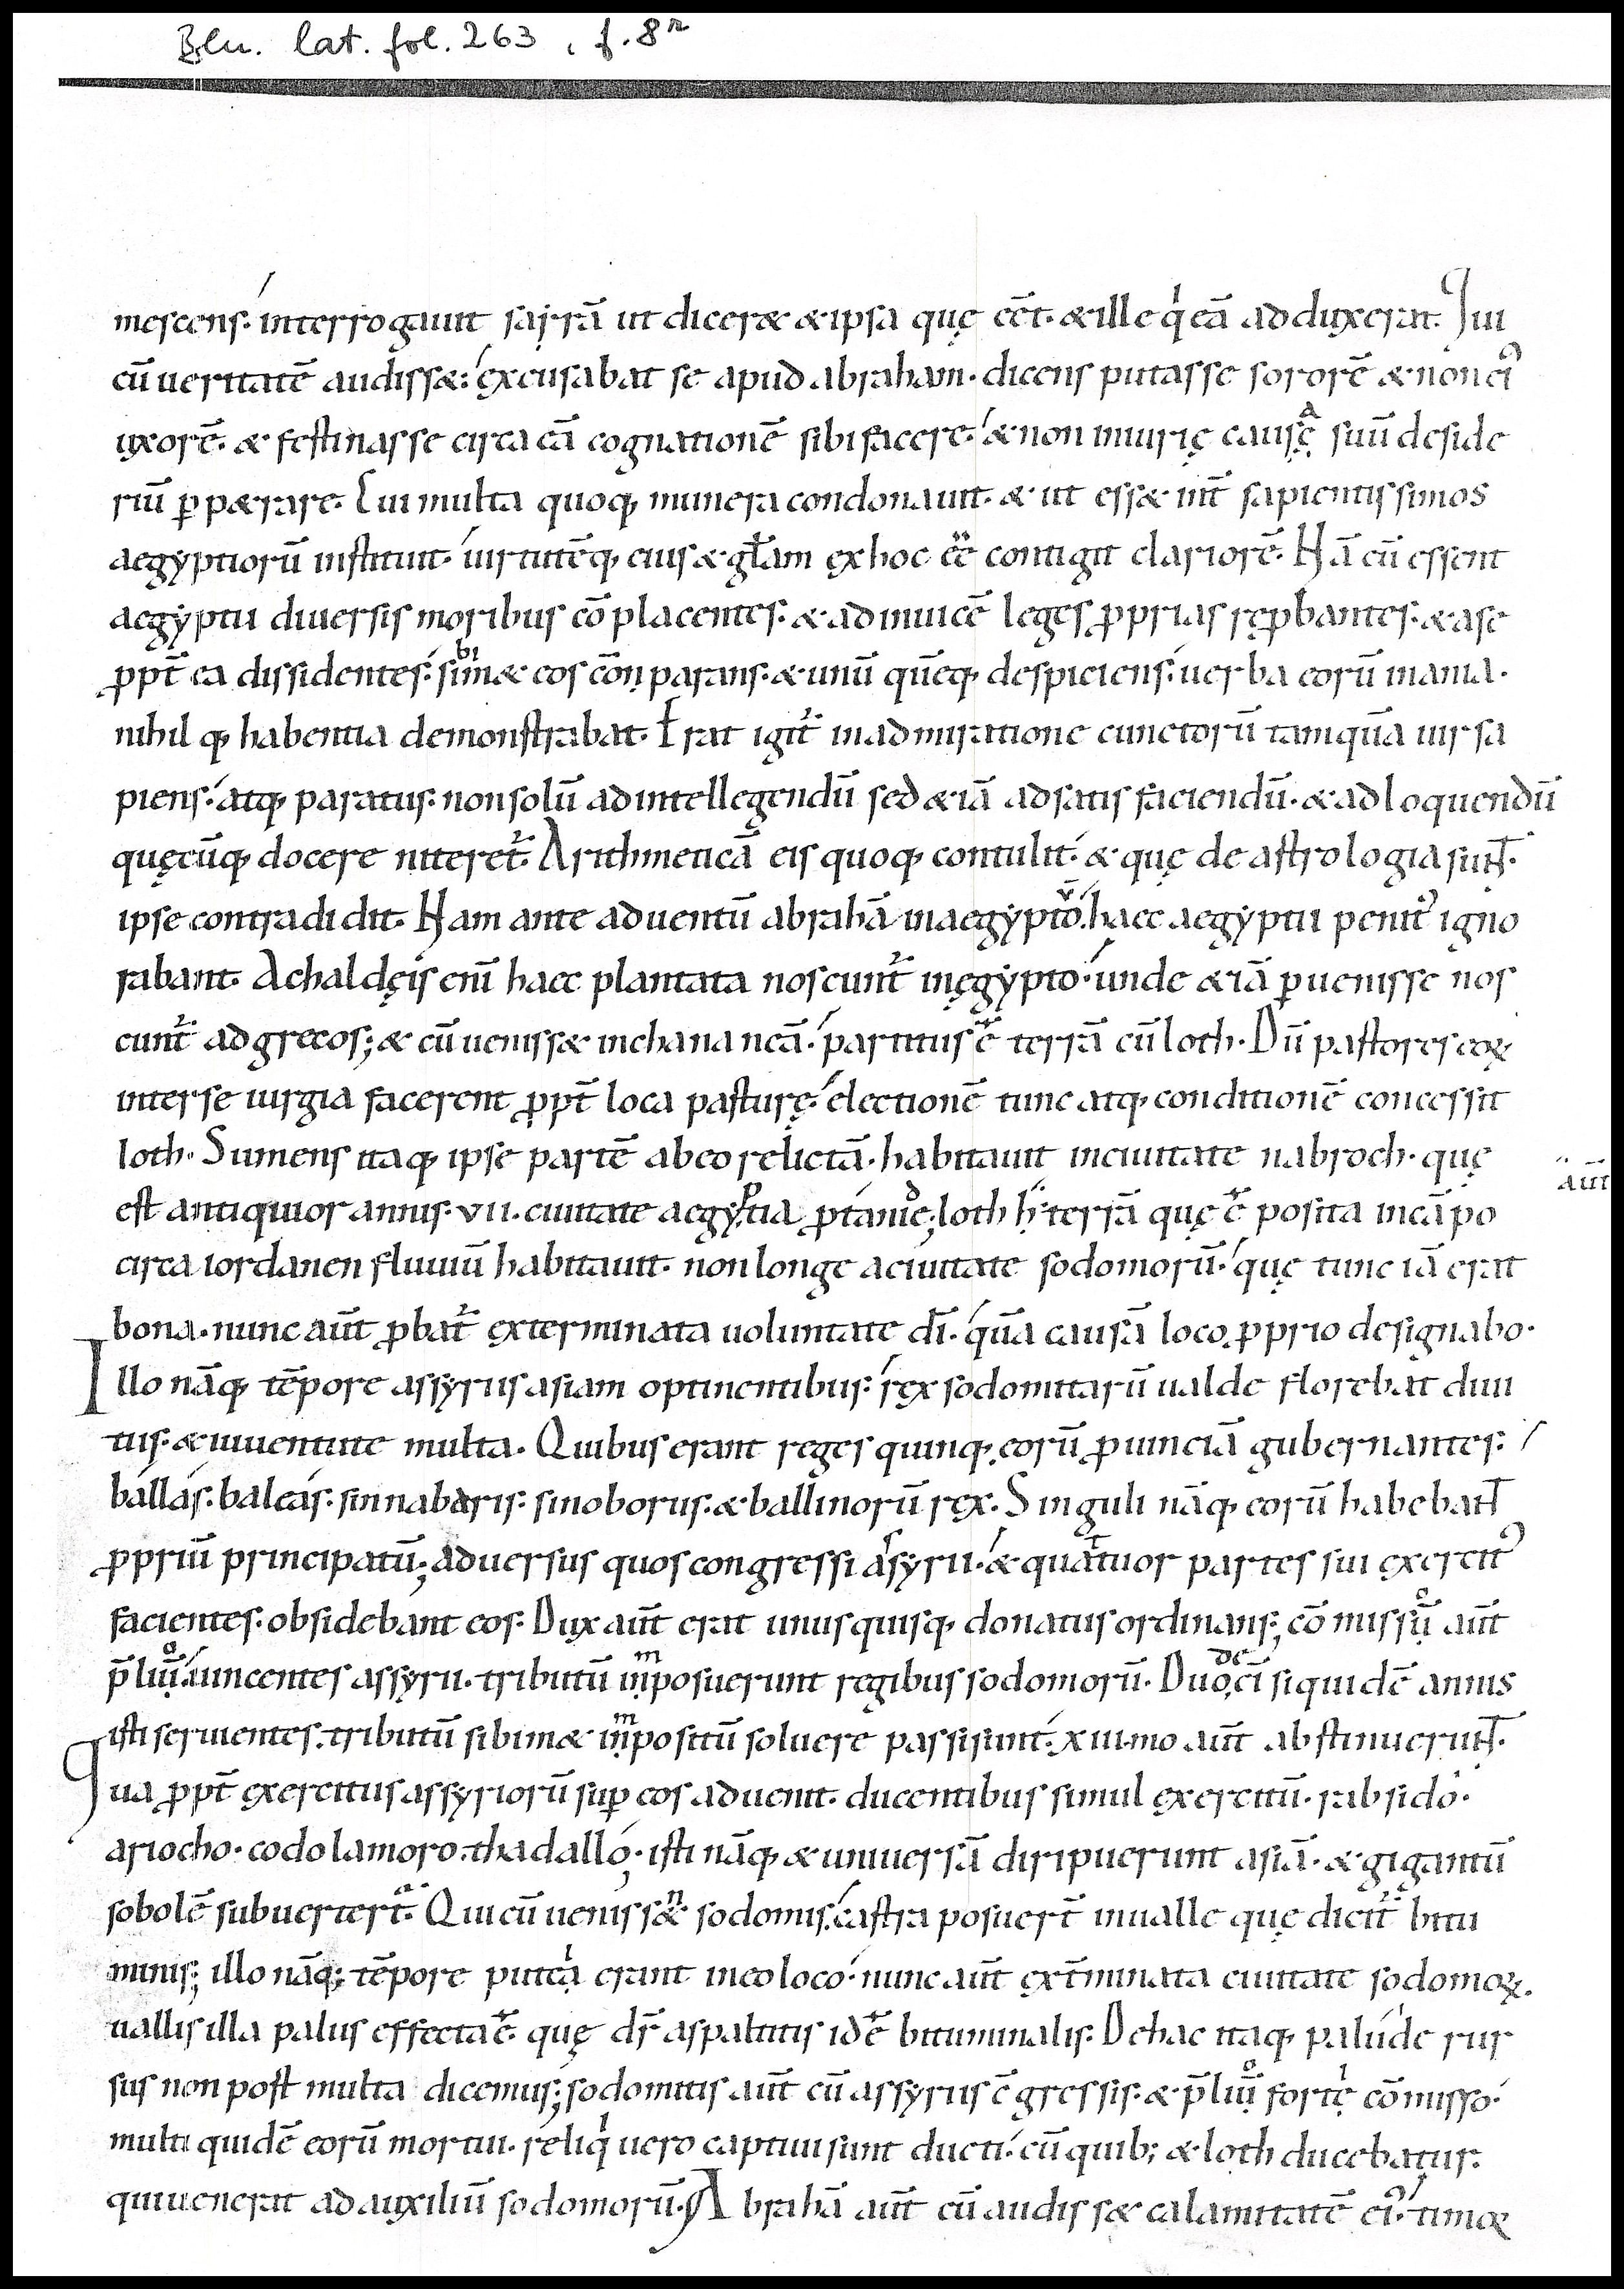 Bln. lat. fol. 263, f. 8r
mescens. interrogauit sarrā ut diceret & ipsa quę eēt. & ille qͥ eā adduxerat. Qui
cū ueritatē audisset: excusabat se apud abraham. dicens putasse sororē & non eiꝰ
uxorē. & festinasse circa eā cognationē sibi facere. & non iniurię causę suū deside
riū ꝑpetrare. Cui multa quoq; munera condonauit. & ut esset int̄ sapientissimos
aegyptiorū instituit. uirtutēq; eius & gl̄am ex hoc eē̄ contigit clariorē. Nā cū essent
aegyptii diuersis moribus cōplacentes. & adinuicē leges ꝓprias reꝓbantes. & a se
ꝓpt̄ ea dissidentes. sibimet eos con parans. & unū quēq; despiciens. uerba eorū inania.
nihil q; habentia demonstrabat. Erat igit᷑ in admiratione cunctorū tamquā uir sa
piens. atq; paratus. non solū ad intellegendū sed etiā ad satis faciendū. & ad loquendū
quęcūq; docere niteret᷑. Arithmeticā eis quoq; contulit. & quę de astrologia sunt.
ipse contradidit. Nam ante aduentū abrahā in aegyptō. haec aegyptii penitꝰ igno
rabant. A chaldęis eni haec plantata noscunt᷑ in ęgypto. unde etiā ꝑuenisse nos
cunt᷑ ad grecos; & cū uenisset in chananeā. partitus ē terrā cū loth. Dū pastores eoꝝ
inter se iurgia facerent ꝓpt̄ loca pasturę. electionē tunc atq; conditionē concessit
loth. Sumens itaq; ipse partē ab eo relictā. habitauit in ciuitate nabroch. quę
aūt
est antiquior annis. VII. ciuitate aegyptia ꝓtanidͦe; loth h᷑ terrā quę ē posita in cāpo
circa iordanen fluuiū habitauit. non longe a ciuitate sodomorū. quę tunc iā erat
bona. nunc aūt ꝓbat᷑ exterminata uoluntate dī. quā causā loco ꝓprio designabo.
Illo nāq; tēpore assyriis asiam optinentibus. rex sodomitarū ualde florebat diui
tiis. & iuuentute multa. Quibus erant reges quinq; eorū ꝓuinciā gubernantes.
ballas. baleas. sinnabaris. sinoborus. & ballinorū rex. Singuli nāq; eorū habebant
ꝓpriū principatū; aduersus quos congressi asyrii. & quattuor partes sui exercitꝰ
facientes. obsidebant eos. Dux aūt erat unusquisq; donatus ordinans; cōmissū aūt
p̄liū. uincentes assyrii. tributū inposuerunt regibus sodomorū. Duodecī siquidē annis
isti seruientes. tributū sibimet inpositū soluere passi sunt. XIII.mo aūt abstinuerunt.
Qua ꝓpt̄ exercitus assyriorū suꝑ eos aduenit. ducentibus simul exercitū. rabsido.
ariocho. codolamoro. thadallo. isti nāq; & uniuersā diripuerunt asiā. & gigantū
sobolē subuertert̄. Qui cū uenissent sodomis. castra posuert̄ in ualle quę dicit᷑ bitu
minis; illo nāq; tēpore putea erant in eo loco. nunc aūt ext̄minata ciuitate sodomoꝝ.
uallis illa palus effecta ē. quę dr̄ aspaltitis id ē bituminalis. De hac itaq; palude rur
sus non post multa dicemus; sodomitis aūt cū assyriis c̄gressis. & p̄liū fortę cōmisso.
multi quidē eorū mortui. reliqͥ uero captiui sunt ducti. cū quib; & loth ducebatur.
qui uenerat ad auxiliū sodomorū. Abrahā aūt cū audisset calamitatē eiꝰ. timor